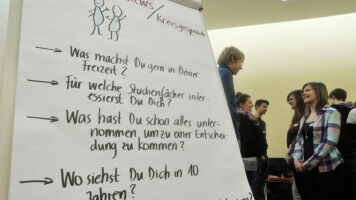 iews/
Kreisgespräch
Was machst Du gern in Deiner
Freizeit?
Für welche Studienfächer inter-
essierst Du Dich?
Was hast Du schon alles unter-
nommen, um zu einer Entschei-
dung zu kommen?
Wo siehst Du Dich in 10
Jahren?